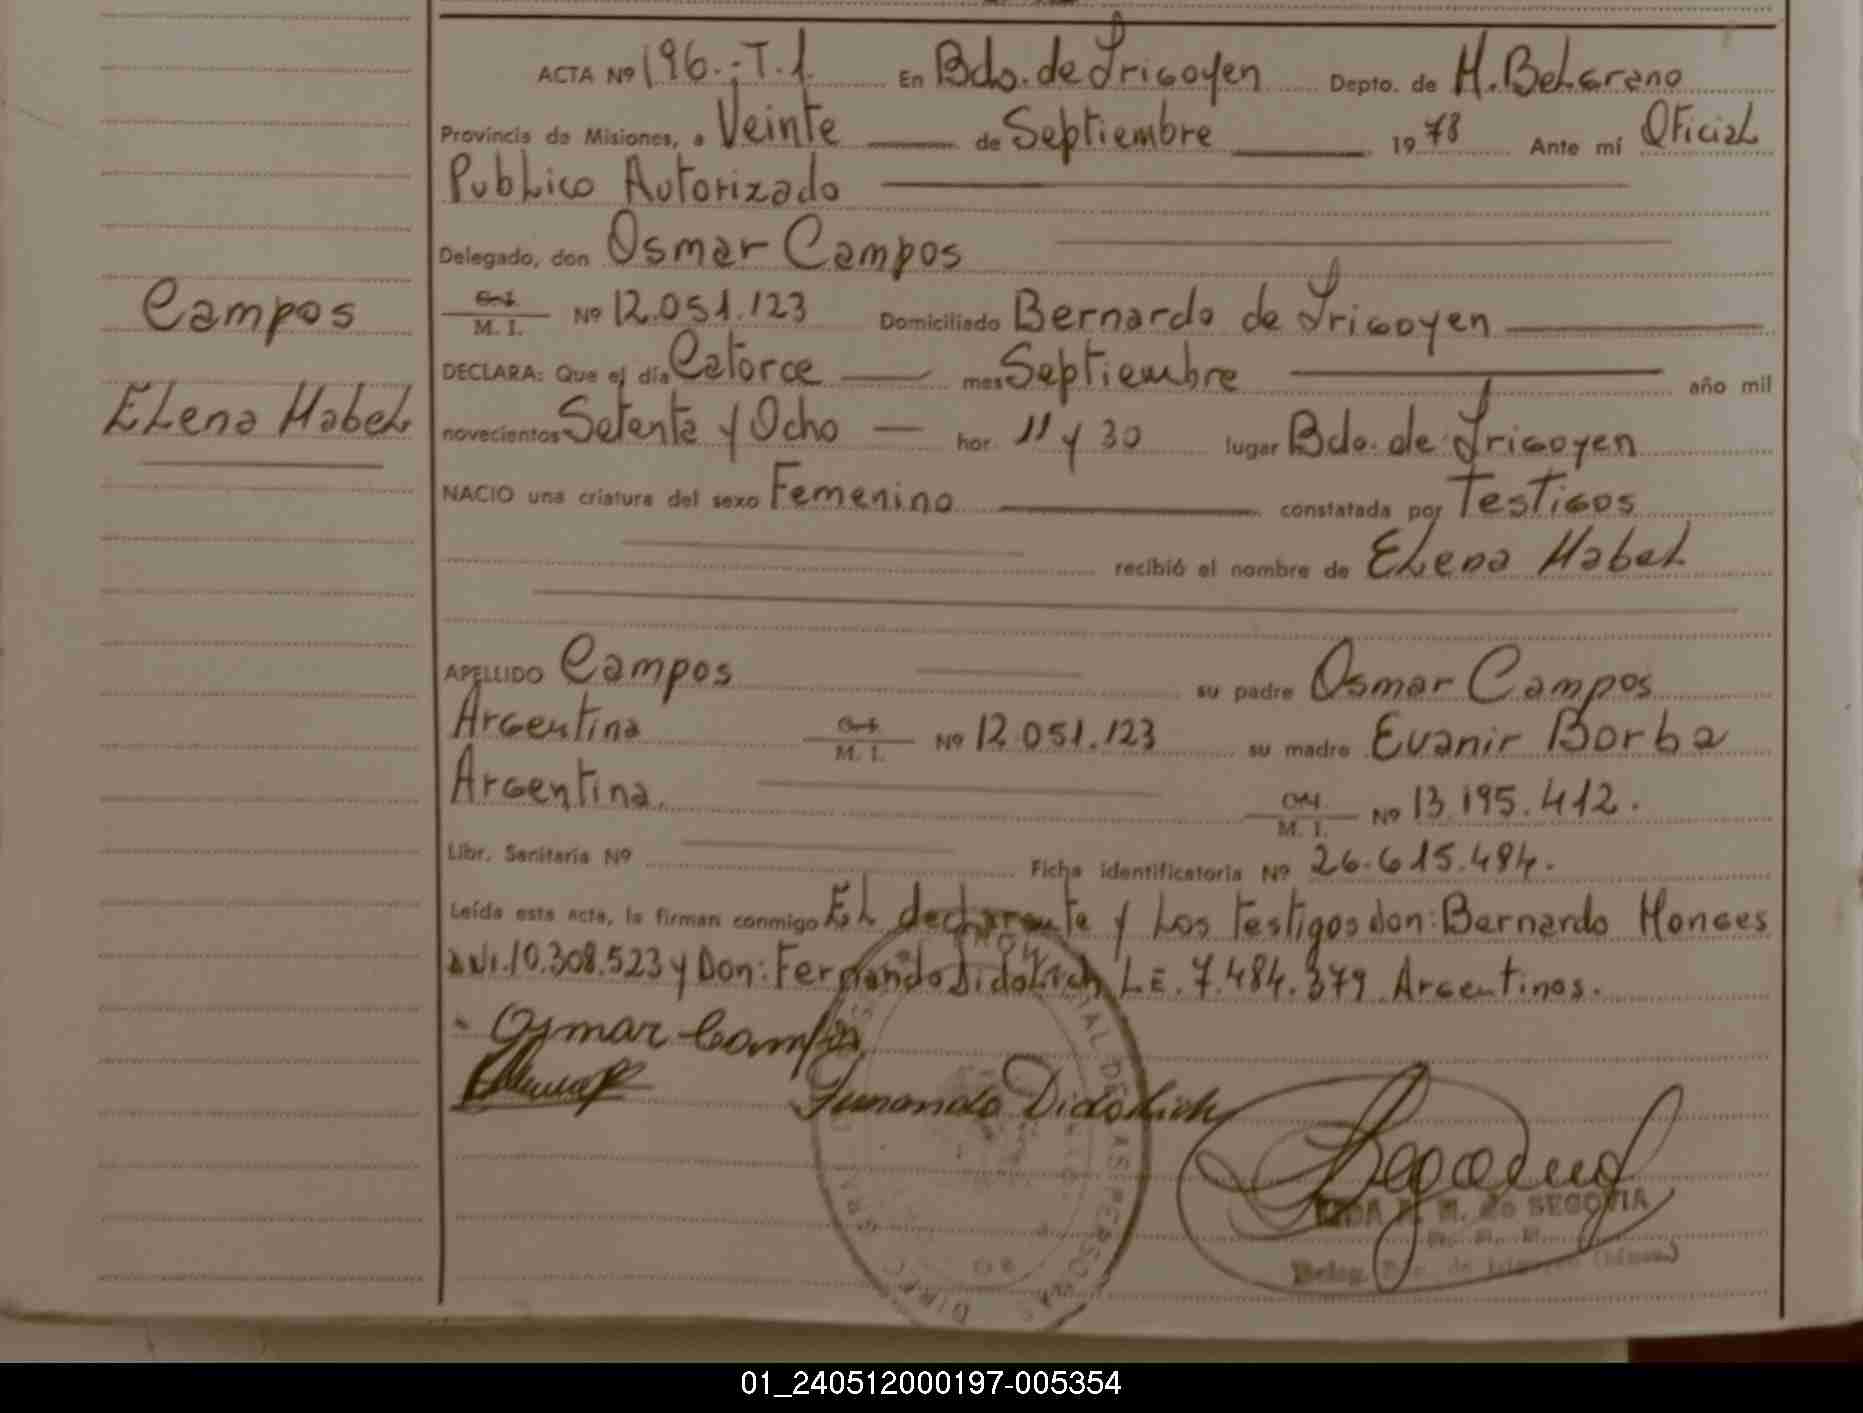 ACTA Nº 196.-T.1. En Bdo. de Irigoyen Depto. de M. Belgrano
Provincia de Misiones, a Veinte de Septiembre 1978 Ante mí Oficial
Publico Autorizado
Delegado, don Osmar Campos
M. I. Nº 12.051.123 Domiciliado Bernardo de Irigoyen
Campos
DECLARA: Que el día Catorce mes Septiembre año mil
Elena Mabel
novecientos Setenta y Ocho hor. 11 y 30 lugar Bdo. de Irigoyen
NACIO una criatura del sexo Femenino constatada por Testigos
recibió el nombre de Elena Mabel
APELLIDO Campos su padre Osmar Campos
Argentina M. I. Nº 12.051.123 su madre Evanir Borba
Argentina. M. I. Nº 13.195.412.
Libr. Sanitaria Nº Ficha identificatoria Nº 26.615.484.
Leída esta acta, la firman conmigo El declarante y los Testigos don: Bernardo Monges
DNI. 10.308.523 y Don: Fernando Didolich L.E. 7.484.379 Argentinos.
Osmar Campos
Fernando Didolich
M. de SEGOVIA
Deleg.
01_240512000197-005354